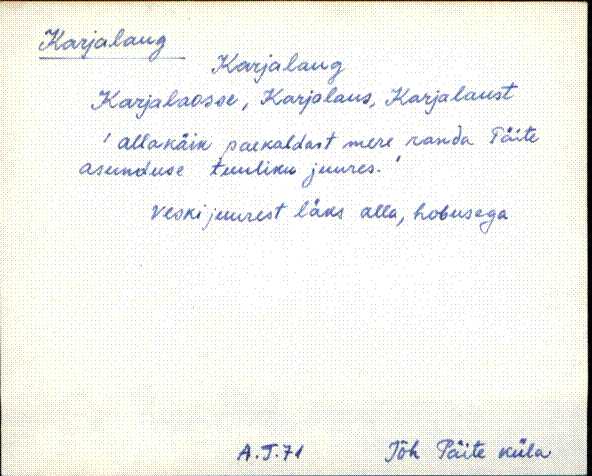 Karjalaug
Karjalaug
Karjalaosse, Karjalaus, Karjalaust
'allakäik paekaldast mere randa Päite
asunduse tuuliku juures.'
Veski juurest läks alla, hobusega
A.T.71 Jõh Päite küla